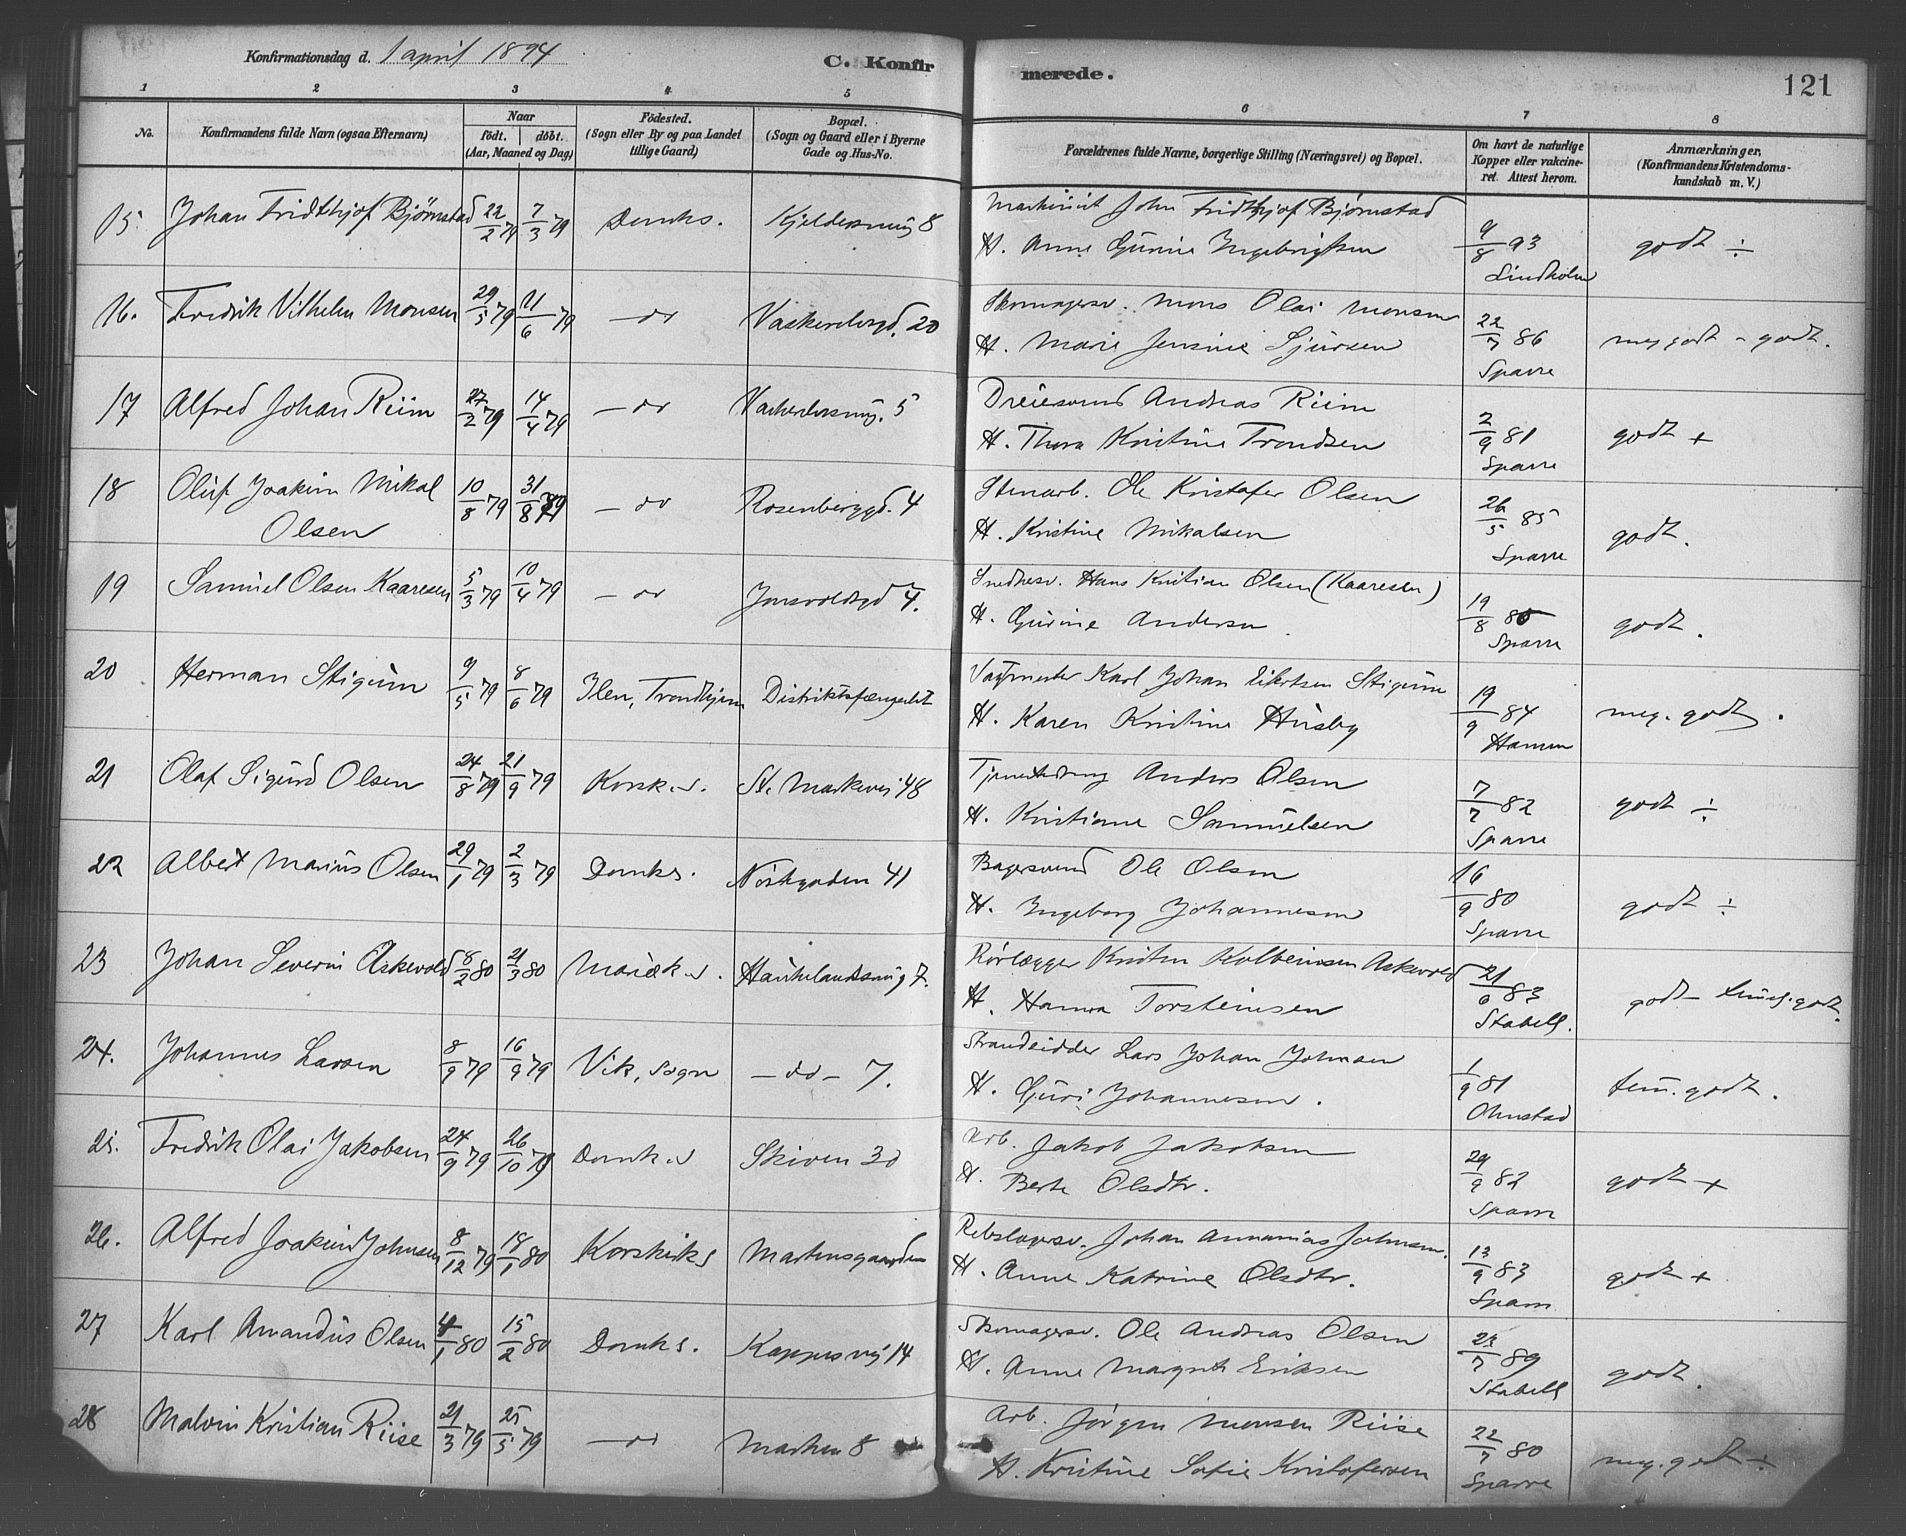 Konfirmationsdag d. 1 april 1894
C. Konfirmerede.
121
1 2 3 4 5 6 7 8
No.
Konfirmandens fulde Navn (ogsaa Efternavn)
Naar
födt. döbt.
(Aar, Maaned og Dag)
Födested.
(Sogn eller By og paa Landet tillige Gaard)
Bopæl.
(Sogn og Gaard eller i Byerne Gade og Hus-No.
Forældrenes fulde Navne, borgerlige Stilling (Næringsvei) og Bopæl.
Om havt de naturlige Kopper eller vakcineret. Attest herom.
Anmærkninger.
(Konfirmandens Kristendomskundskab m. V.)
15. Johan Fridthjof Bjørnstad 22/2 79 7/3 79 Domks. 8
John Fridthjof Bjørnstad
H. Anne Gurine Ingebrigtsen
9/8 93 Lindholm
godt ÷
16. Fredrik Vilhelm Monsen 29/5 79 11/6 79 — do 20
Skomagersv. Mons Olai Monsen
H. Marie Jensine Sjursen
22/7 86 Sparre
meg godt - godt.
17 Alfred Johan Riim 27/2 79 14/4 79 — do 5
Dreiersvend Andreas Riim
H. Thora Kristine Trondsen
2/9 81 Sparre
godt +
18 Oluf Joakim Mikal Olsen 10/8 79 31/8 79 — do Rosenberggd. 4
Stenarb. Ole Kristofer Olsen
H. Kristine Mikalsen
26/5 85 Sparre
godt.
19 Samuel Olsen Kaaresen 5/3 79 10/4 79 — do Jonsvoldsgd 4.
Snedkersv. Hans Kristian Olsen (Kaaresen)
H. Gurine Andersen
19/8 Sparre
godt.
20 Herman Stigum 9/5 79 8/6 79 Ilen, Trondhjem Distriktsfængselet
Vagtmester Karl Johan Stigum
H. Karen Kristine Husby
19/9 84
meg. godt.
21 Olaf Sigurd Olsen 24/8 79 21/9 79 Korsk.s. St. Markevei 48
Anders Olsen
H. Kristiane Samuelsen
7/7 82 Sparre
godt ÷
22 Albert Marius Olsen 29/1 79 2/3 79 Domks. Nöstegaden 41
Bagersvend Ole Olsen
H. Ingeborg Johannesen
16/9 80 Sparre
godt ÷
23 Johan Severin Askevold 8/2 80 21/3 80 Mariæk.s. Haukelandssmug 7.
Rørlægger Kristen Kolbeinsen Askevold
H. Hanna Torsteinsen
21/6 83 Stabell.
godt - temmel. godt.
24. Johannes Larsen 8/9 79 16/9 79 Vik, Sogn — do — 7.
Strandsidder Lars Johan Johnsen
H. Guri Johannesen.
1/9 81 Ohnstad
tem. godt.
25. Fredrik Olai Jakobsen 24/9 79 26/10 79 Domk.s Skiven 30
Arb. Jakob Jakobsen
H. Berte Olsdtr.
29/9 82 Sparre
godt +
26. Alfred Joakim Johnsen 8/12 79 18/1 80 Korskirks Martensgaarden
Rebslagersv. Johan Annanias Johnsen.
H. Anne Katrine Olsdtr.
13/9 83 Sparre
godt +
27 Karl Amandus Olsen 4/1 80 15/2 80 Domks. Kappesvei 14
Skomagersv. Ole Andreas Olsen
H. Anne Margrete Eriksen
22/7 89 Stabell
godt.
28 Malvin Kristian Riise 21/3 79 25/5 79 — do Marken 8
Arb. Jørgen Monsen Riise
H. Kristine Sofie Kristofersen
22/7 80 Sparre
meg. godt ÷